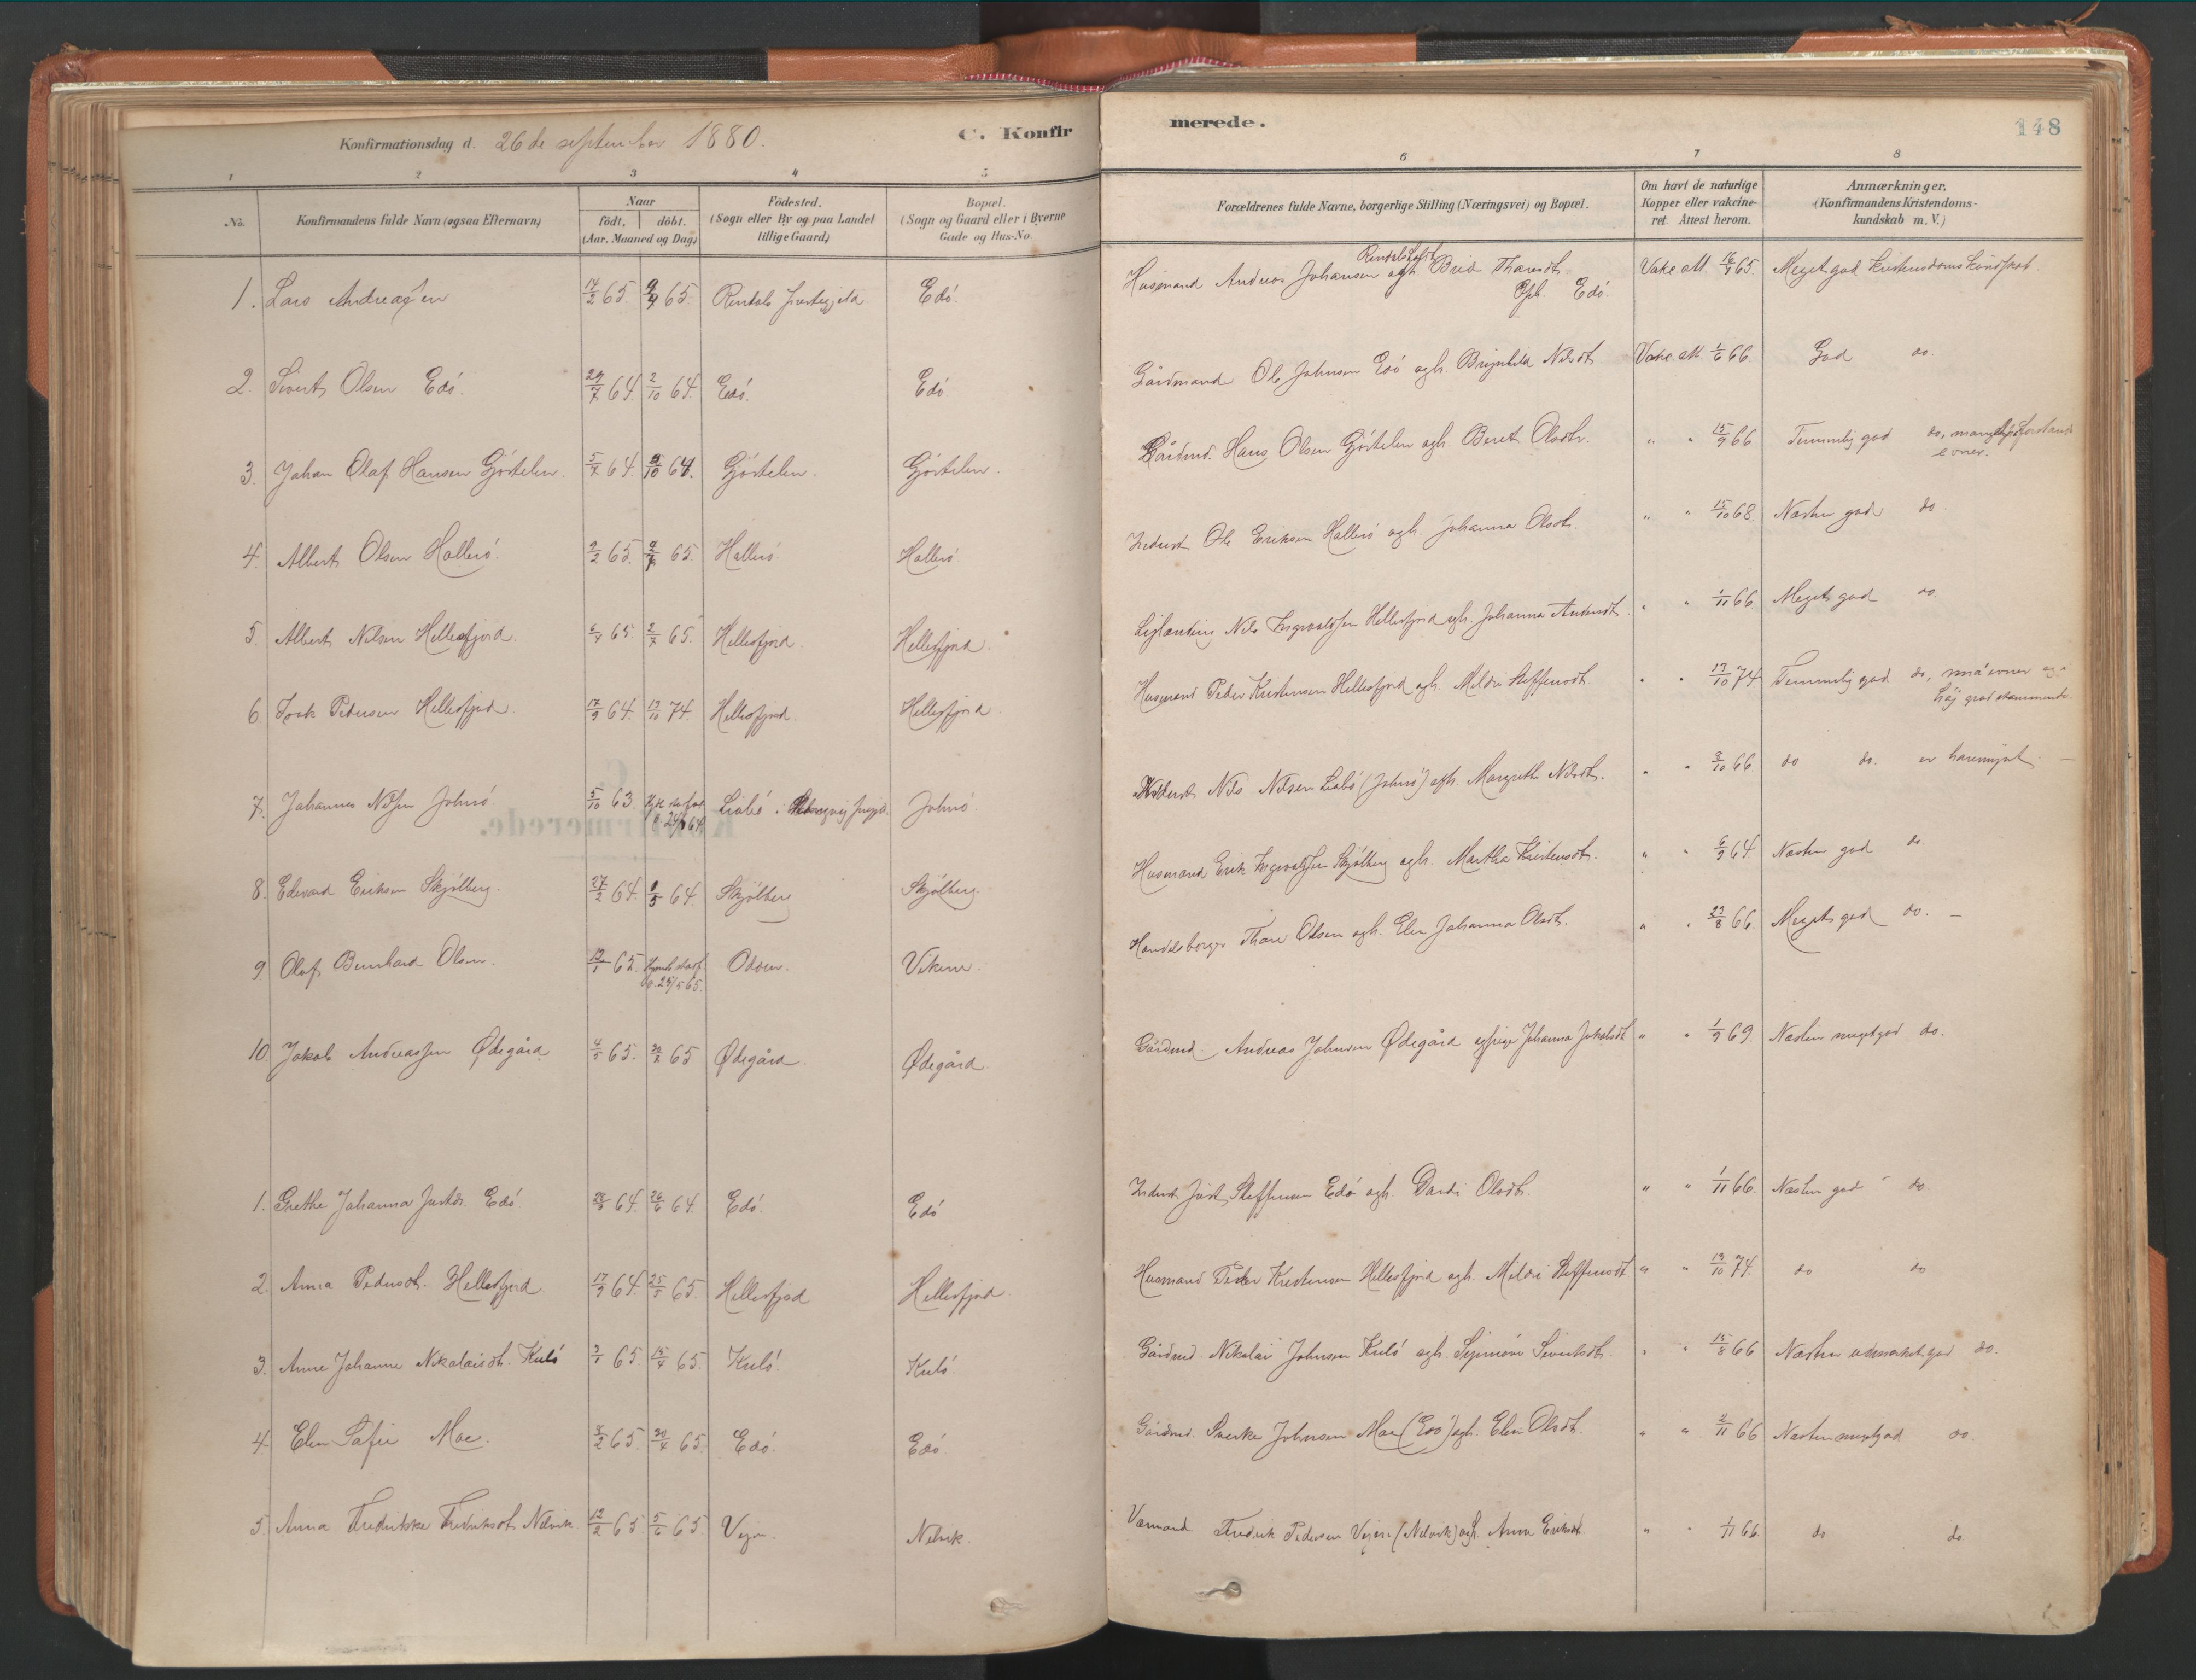 Konfirmationsdag d. 26de september 1880.
C. Konfirmerede.
148
1 2 3 4 5 6 7 8
No.
Konfirmandens fulde Navn (ogsaa Efternavn)
Naar
födt. döbt.
(Aar. Maaned og Dag)
Födested.
(Sogn eller By og paa Landet
tillige Gaard)
Bopæl.
(Sogn og Gaard eller i Byerne
Gade og Hus-No.
Forældrenes fulde Navne, borgerlige Stilling (Næringsvei) og Bopæl.
Om havt de naturlige
Kopper eller vakcine-
ret. Attest herom.
Anmærkninger.
(Konfirmandens Kristendoms-
kundskab m. V.)
1. Lars Andreassen 14/2 65. 9/4 65. Rindals præstegjeld Edö. Husmand Andreas Johansen ogh. Brid Tharsdt. Edö. Vakc. att. 16/9 65. Meget god kristendomskundskab
2. Sivert Olsen Edö. 29/7 64. 2/10 64. Edö. Edö Gårdmand Ole Johnsen Edö ogh. Brynhild Nilsdt. Vakc. att. 1/6 66. God do.
3. Johan Olaf Hansen Gjöstelen 5/7 64. 9/10 64. Gjöstelen. Gjöstelen. Gårdmd. Hans Olsen Gjöstelen ogh. Beret Olsdtr. " " 15/9 66 Temmelig god do, mangler forstands
evner.
4. Albert Olsen Hallerö. 9/2 65. 65. Hallerö Hallerö Inderst Ole Eriksen Hallerö ogh. Johanna Olsdt. " " 15/10 68. Næsten god do.
5. Albert Nelsen Hellesfjord. 65. 2/7 65. Hellesfjord. Hellesfjord. Nils Ingvaldsen Hellesfjord ogh. Johanna Andersdt. " " 1/11 66 Meget god do.
6. Pedersen Hellesfjord 17/9 64. 13/10 74. Hellesfjord. Hellesfjord. Husmand Peder Kristensen Hellesfjord ogh. Mildri Steffensdt. " " 13/10 74 Temmelig god do, små evner og i
höj grad stammende.
7. Johannes Nilsen Johnsö 5/10 63. 64. Liabö i Johnsö. Inderst Nils Nilsen Liabö (Johnsö) ogh. Margrethe Nilsdt. " " 9/10 66. do do. er haremynt. —
8. Edevard Eriksen Skjölberg. 27/2 64. 64. Skjölberg Skjölberg. Husmand Erik Ingvaldsen Skjölberg ogh. Martha Kristensdt. " " 6/9 64. Næsten god do.
9. Olaf Bernhard Olsen. 12/1 65. Hjemb. stadf. 25/5 65. Odden. Vikene. Handelsborger Thore Olsen ogh. Elen Johanna Olsdt. " " 23/8 66. Meget god do. —
10. Jakob Andreassen Ødegård 4/5 65. 30/7 65 Ødegård. Ødegård. Gårdmd. Andreas Johnsen Ødegård og Johanna Jakobsdt. " " 1/9 69. Næsten meget god do.
1. Grethe Johanna Justdr. Edö. 64. 26/6 64. Edö. Edö Inderst Just Steffensen Edö ogh. Dardi Olsdt. " " 1/11 66. Næsten god do.
2. Anna Pedersdt. Hellesfjord. 17/9 64. 25/5 65. Hellesfjord Hellesfjord. Husmand Peder Kristensen Hellesfjord ogh. Mildri Steffensdt. " " 13/10 74. do do
3. Anne Johanne Nikolaisdt. Kulö 3/1 65. 15/4 65. Kulö. Kulö. Gårdmd. Nikolai Johnsen Kulö ogh. Sivertsdt. " " 15/8 66 Næsten udmærket god do.
4. Elen Sofie Moe. 2/2 65. 30/4 65. Edö. Edö. Gårdmd. Sverke Johnsen Moe (Edö) ogh. Elen Olsdt. " " 2/11 66 Næsten meget god do.
5. Anna Fredrikke Fredriksdt. Nelvik 12/2 65. 5/6 65 Nelvik. Fredrik Pedersen (Nelvik) ogh. Anne Eriksdt. " " 1/11 66. do do.